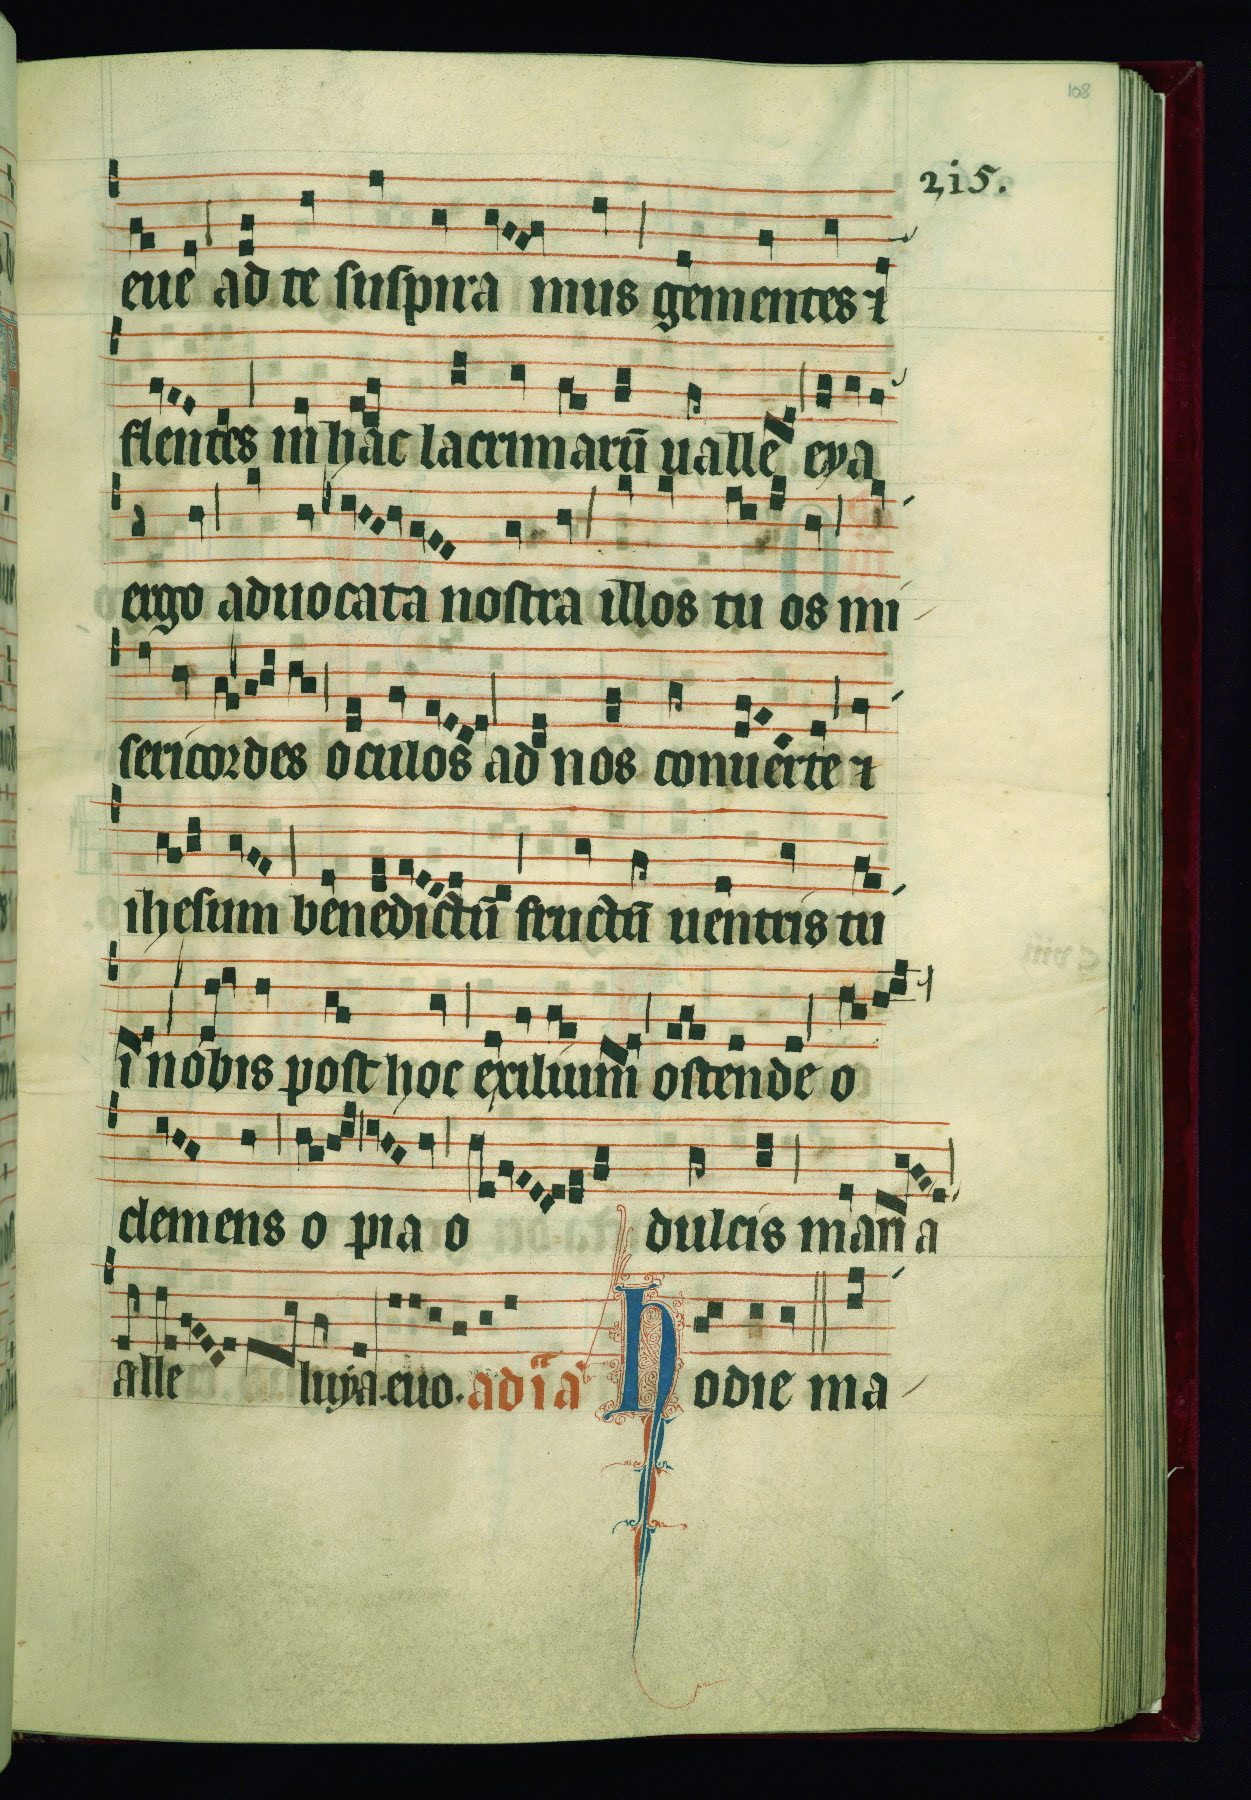 108
215.
eue ad te suspira mus gementes ⁊
flentes in hac lacrimarū ualle eya
ergo aduocata nostra illos tu os mi
sericordes oculos ad nos conuerte ⁊
ihesum benedictū fructū uentris tu
i nobis post hoc exilium ostende o
clemens o pia o dulcis maria
alle luya.euo. ad ī a hodie ma